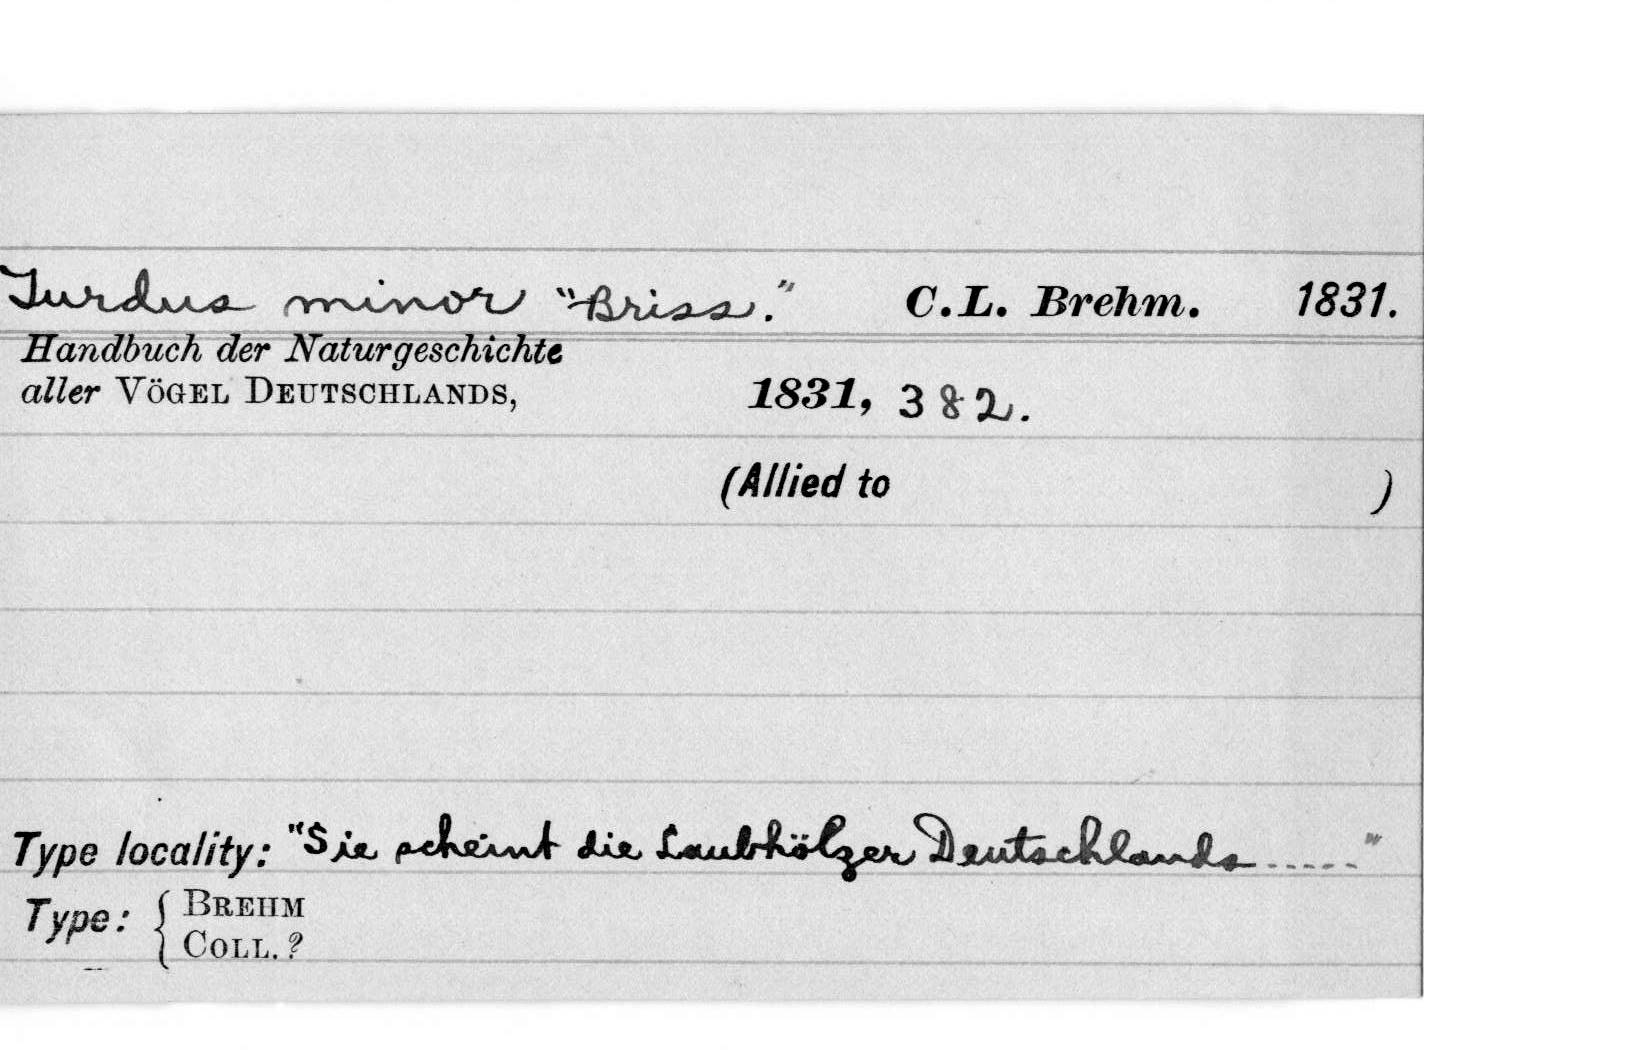 Turdus minor "Briss." C.L. Brehm. 1831.
Handbuch der Naturgeschichte
aller VÖGEL DEUTSCHLANDS, 1831, 382.
(Allied to )
Type locality: "Sie scheint die Laubhölzer Deutschlands ....."
Type: { BREHM
COLL. ?